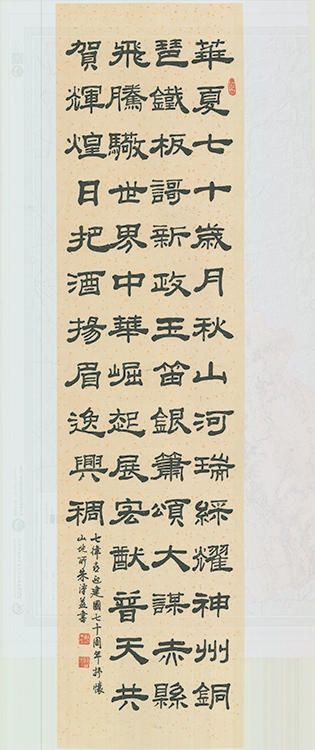 華夏七十歲月秋山河瑞綵耀神州銅
琶鐵板謌新政玉笛銀簫頌大謀赤縣
飛騰驚世界中華崛起展宏猷普天共
賀輝煌日把酒揚眉逸興稠
七律喜迎建國七十周年抒懷
朱澤益書